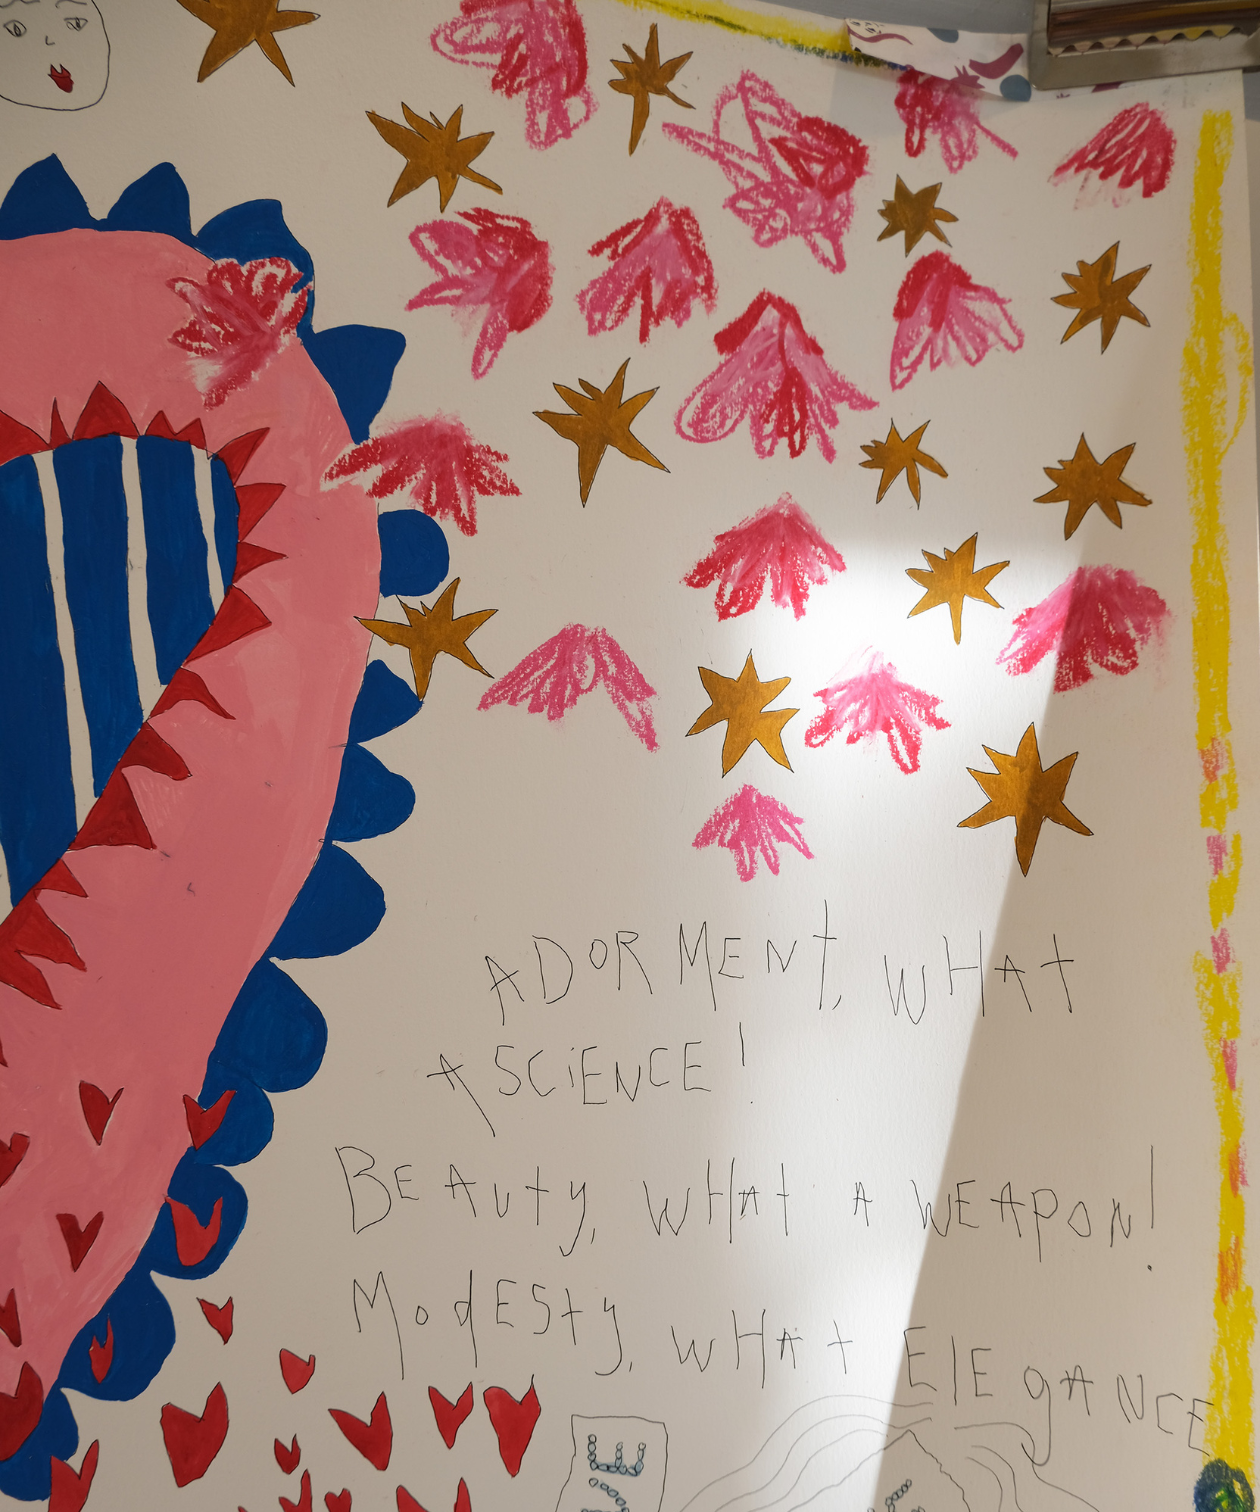 ADORMENT, WHAt
A SCiENCE!
BEAuty, wHAt A WEAPON!
ModESty, wHAt ElEgANCE